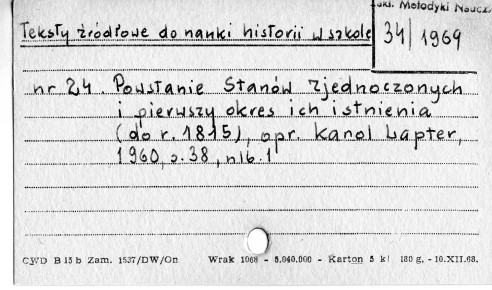 Metodyki Naucz.
Teksty źródłowe do nauki historii w szkole
34/1969
nr 24. Powstanie Stanów Zjednoczonych
i pierwszy okres ich istnienia
(do r. 1815), opr. Karol Lapter,
1960, s. 38, nlb. 1
CWD B 15 b Zam. 1537/DW/On Wrak 1068 - 5.040.000 - Karton 5 kl 180 g. - 10.XII.68.